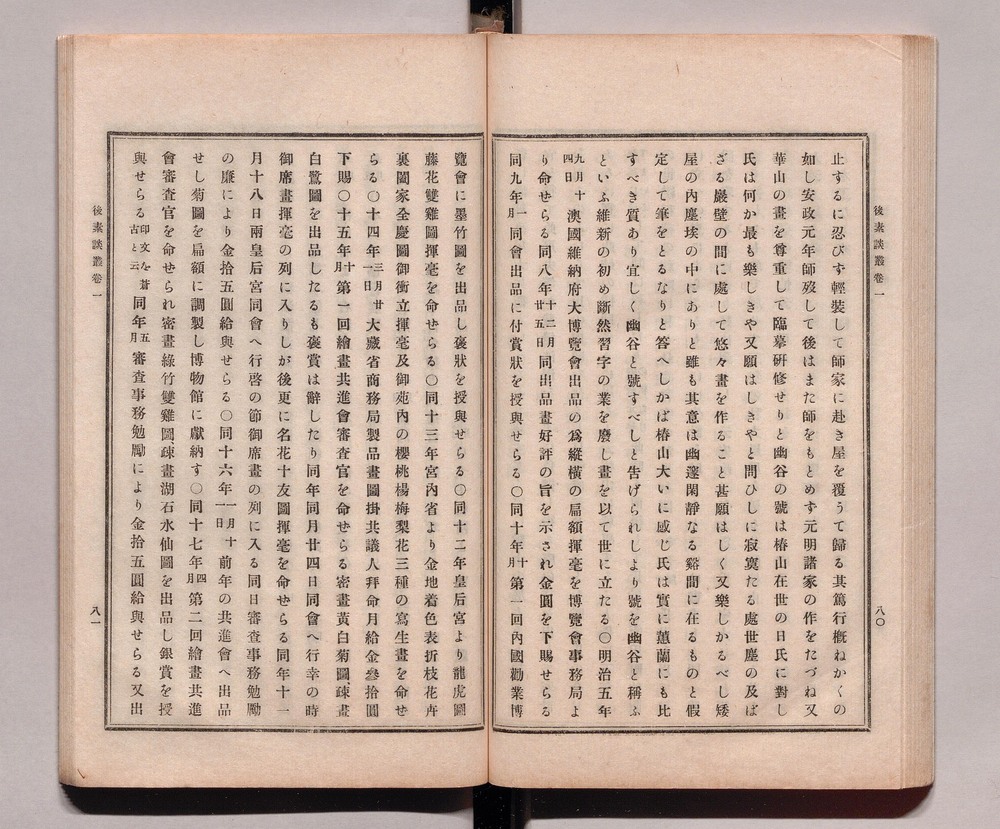 後素談叢卷一
八〇
止するに忍びす輕裝して師家に赴き屋を覆うて歸る其篤行槪ねかくの
如し安政元年師歿して後はまた師をもとめず元明諸家の作をたづね又
華山の畫を尊重して臨摹硏修せりと幽谷の號は椿山在世の日氏に對し
氏は何か最も樂しきや又願はしきやと問ひしに寂寞たる處世塵の及ば
ざる巖壁の間に處して悠々畫を作ること甚願はしく又樂しかるべし矮
屋の內塵埃の中にありと雖も其意は幽邃閑靜なる谿間に在るものと假
定して筆をとるなりと答へしかば椿山大いに感じ氏は實に蕙蘭にも比
すべき質あり宜しく幽谷と號すべしと吿げられしより號を幽谷と稱ふ
といふ維新の初め斷然習字の業を廢し畫を以て世に立たる〇明治五年
九月十四日澳國維納府大博覽會出品の爲縱橫の扁額揮毫を博覽會事務局よ
り命せらる同八年十二月廿五日同出品畫好評の旨を示され金圓を下賜せらる
同九年一月同會出品に付賞狀を授與せらる〇同十年十月第一回內國勸業博
覽會に墨竹圖を出品し褒狀を授與せらる〇同十二年皇后宮より龍虎圖
藤花雙雞圖揮毫を命せらる〇同十三年宮內省より金地着色表折枝花卉
裏闔家全慶圖御衝立揮毫及御苑內の櫻桃楊梅梨花三種の寫生畫を命せ
らる〇十四年三月廿一日大藏省商務局製品畫圖掛共議人拜命月給金叄拾圓
下賜〇十五年十月第一回繪畫共進會審査官を命せらる密畫黃白菊圖、疎畫
白鷺圖を出品したるも褒賞は辭したり同年同月廿四日同會へ行幸の時
御席畫揮毫の列に入りしが後更に名花十友圖揮毫を命せらる同年十一
月十八日兩皇后宮同會へ行啓の節御席畫の列に入る同日審査事務勉勵
の廉により金拾五圓給與せらる〇同十六年一月十一日前年の共進會へ出品
せし菊圖を扁額に調製し博物館に獻納す〇同十七年四月第二回繪畫共進
會審査官を命せられ密畫綠竹雙雞圖、疎畫湖石水仙圖を出品し銀賞を授
與せらる印文を蒼古と云同年五月審査事務勉勵により金拾五圓給與せらる又出
後素談叢卷一
八一